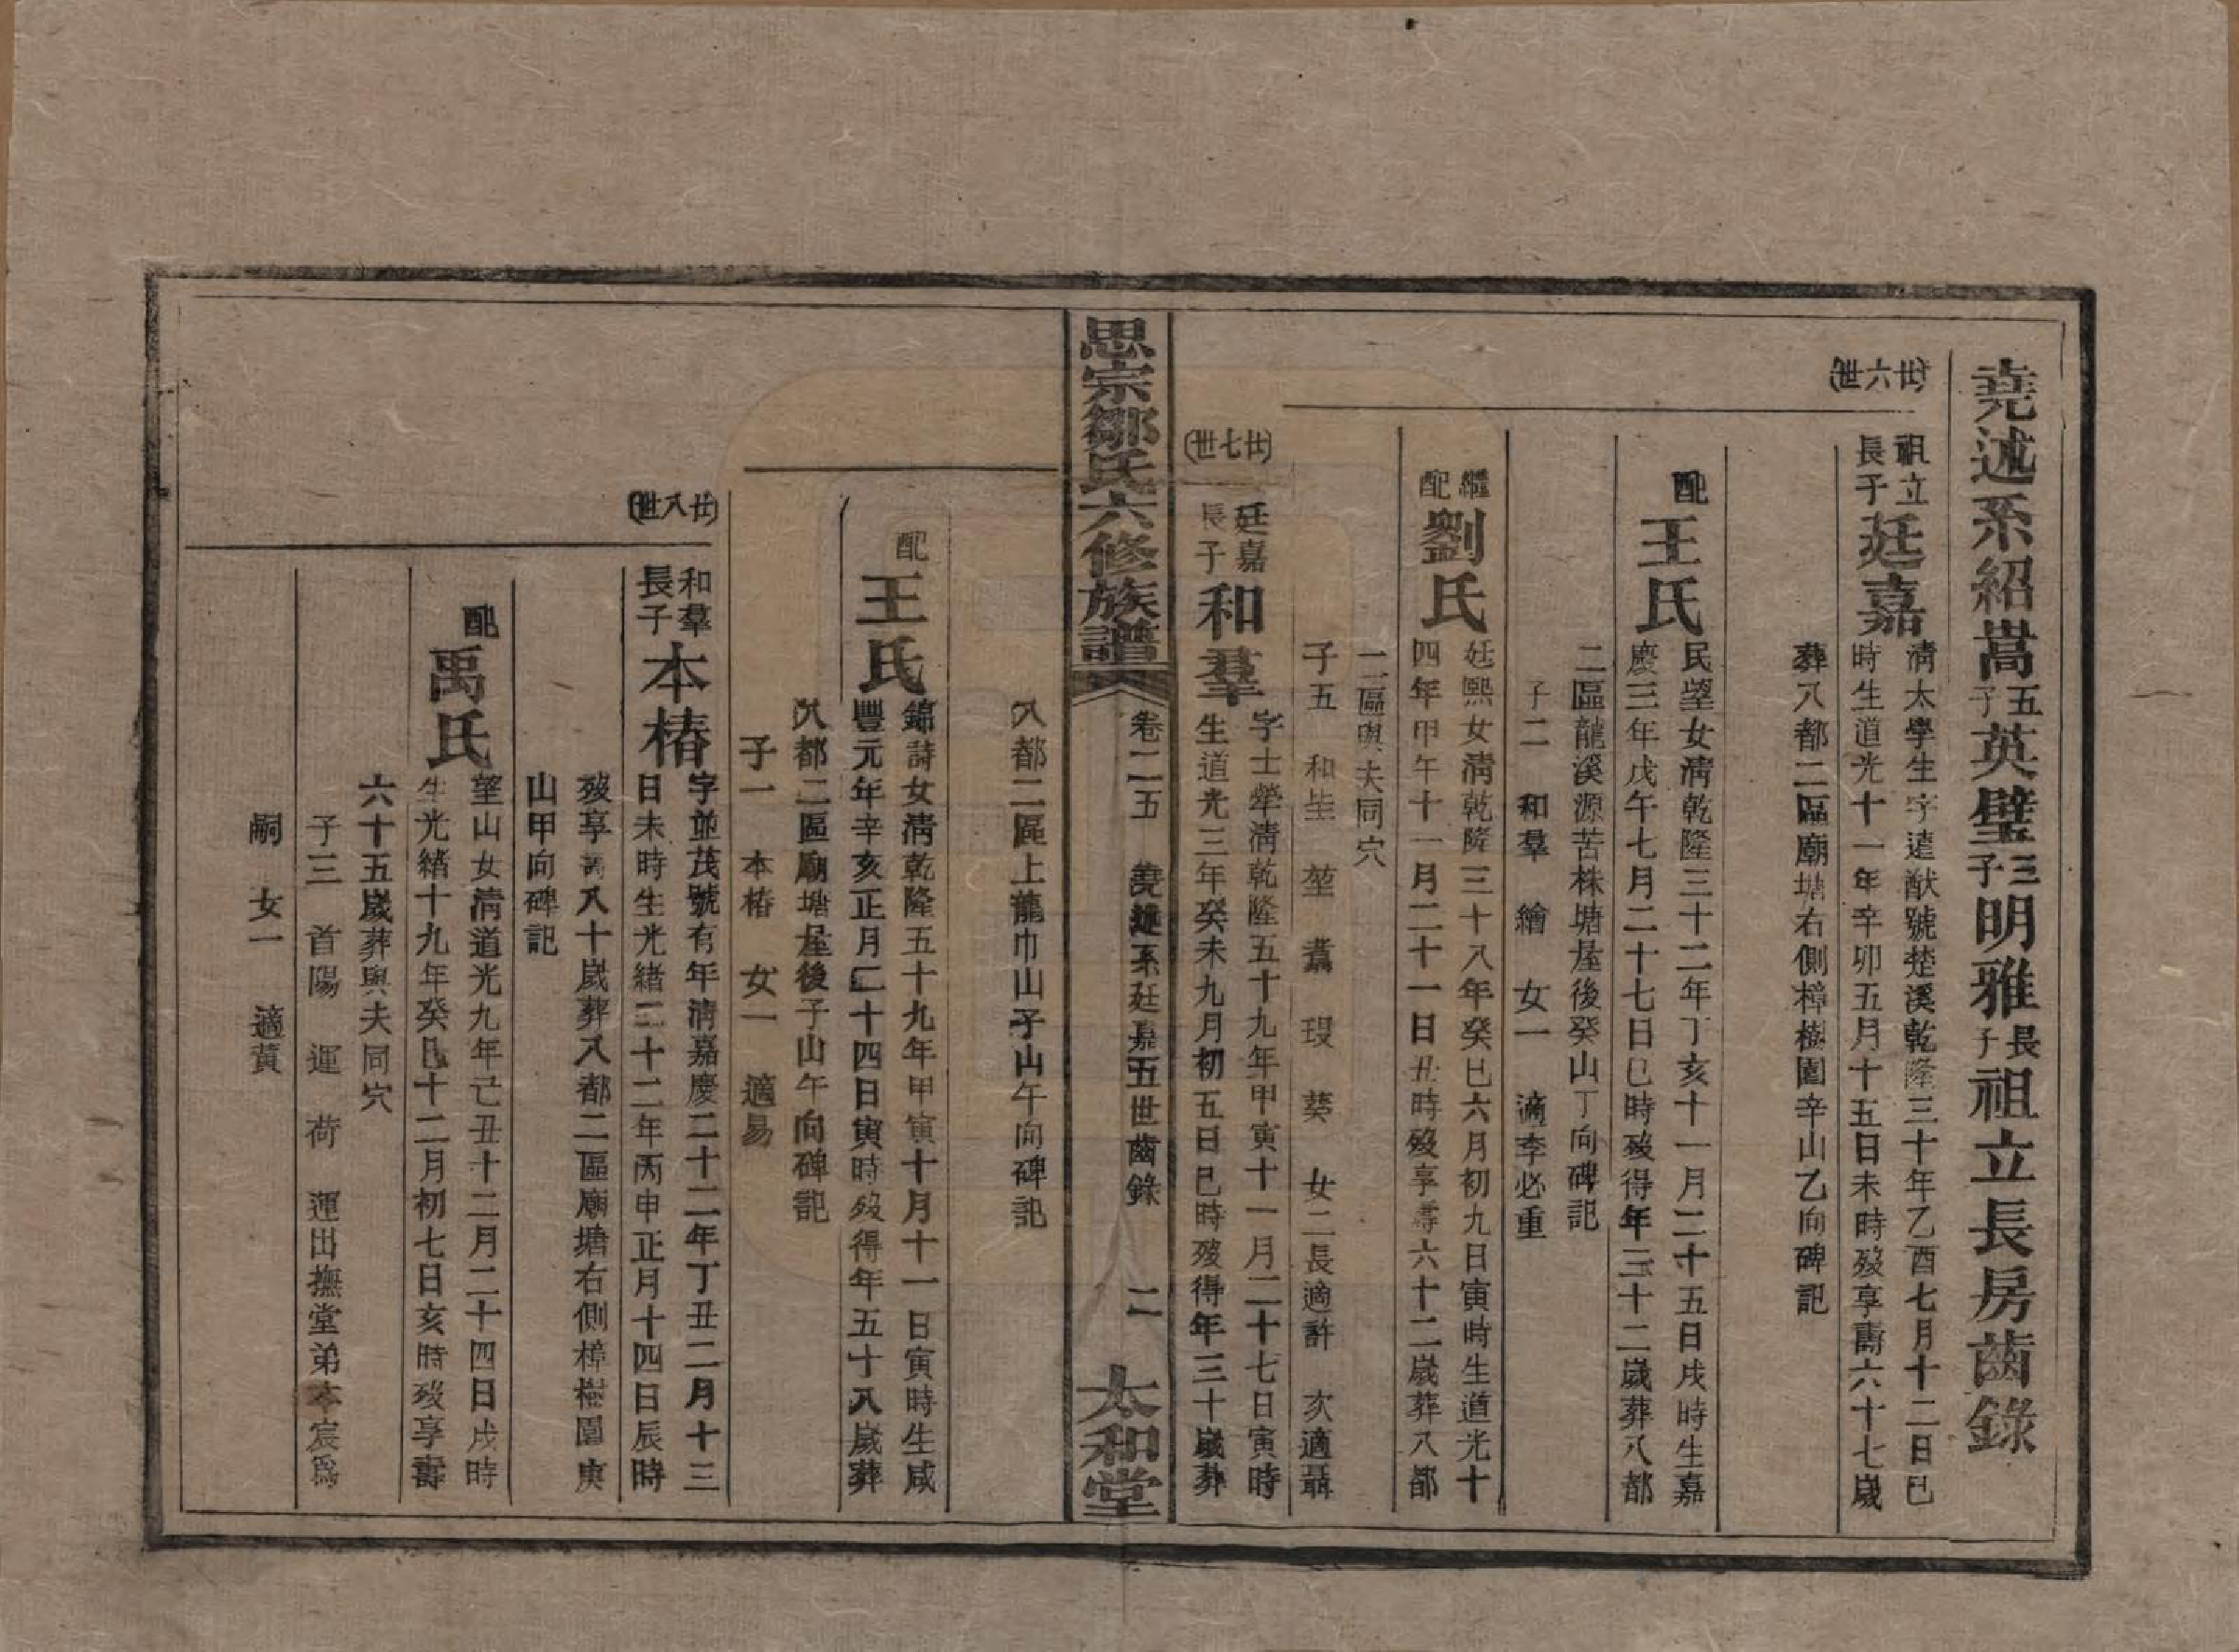 堯述系紹嵩五子英璧三子明雅長子祖立長房齒錄
(廿六世)
祖立長子廷嘉
清太學生字遠猷號楚溪乾隆三十年乙酉七月十二日巳
時生道光十一年辛卯五月十五日未時歿享壽六十七歲
葬八都二區廟塘右側樟樹園辛山乙向碑記
配王氏
民望女清乾隆三十二年丁亥十一月二十五日戌時生嘉
慶三年戊午七月二十七日巳時歿得年三十二歲葬八都
二區龍溪源苦株塘屋後癸山丁向碑記
子二 和羣 繪 女一 適李必重
繼配劉氏
廷熙女清乾隆三十八年癸巳六月初九日寅時生道光十
四年甲午十一月二十一日丑時歿享壽六十二歲葬八都
二區與夫同穴
子五 和坒 堃 燾 葵 女二長適許 次適聶
(廿七世)
廷嘉長子和羣
字士犖清乾隆五十九年甲寅十一月二十七日寅時
生道光三年癸未九月初五日巳時歿得年三十歲葬
思宗鄒氏六修族譜
卷二五 堯述系廷嘉五世齒錄 二
太和堂
八都二區上龍巾山子山午向碑記
配王氏
錦詩女清乾隆五十九年甲寅十月十一日寅時生咸
豐元年辛亥正月二十四日寅時歿得年五十八歲葬
八都二區廟塘屋後子山午向碑記
子一 本椿 女一 適易
(廿八世)
和羣長子本椿
字並茂號有年清嘉慶二十二年丁丑二月十三
日未時生光緒二十二年丙申正月十四日辰時
歿享壽八十歲葬八都二區廟塘右側樟樹園庚
山甲向碑記
配禹氏
望山女清道光九年己丑十二月二十四日戌時
生光緒十九年癸巳十二月初七日亥時歿享壽
六十五歲葬與夫同穴
子三 首陽 運 荷 運出撫堂弟本宸爲
嗣 女一 適黃